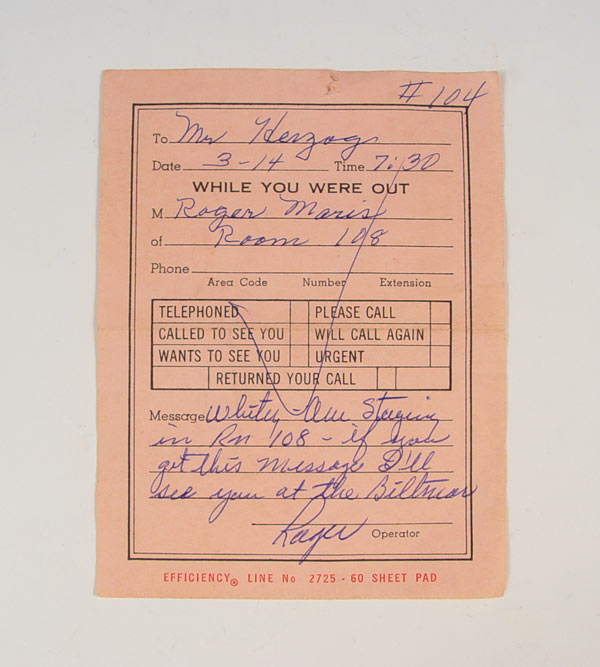 # 104
To Mr Herzog
Date 3-14 Time 7:30
WHILE YOU WERE OUT
M Roger Maris
of Room 108
Phone
Area Code Number Extension
TELEPHONED PLEASE CALL
CALLED TO SEE YOU WILL CALL AGAIN
WANTS TO SEE YOU URGENT
RETURNED YOUR CALL
Message Whitey - Am Staying
in Rm 108 - if you
get this message I'll
see you at the Biltmor
Roger
Operator
EFFICIENCY® LINE No 2725 - 60 SHEET PAD